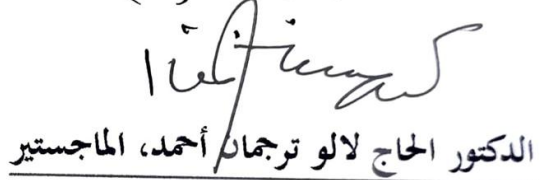 الدكتور الحاج لالو ترجمان أحمد، الماجستير